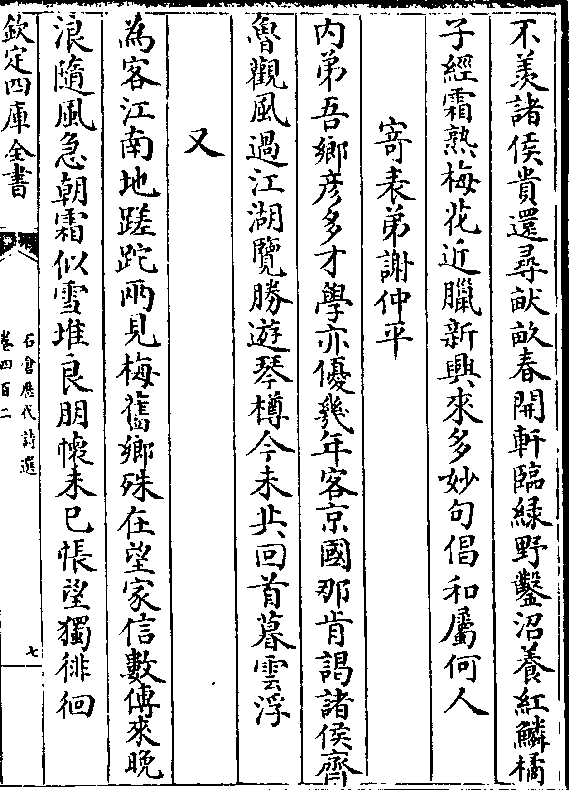 不羡諸侯貴還尋畎畝春開軒臨綠野鑿沼養紅鱗橘
子經霜熟梅花近臘新興來多妙句倡和屬何人
寄表弟謝仲平
内弟吾鄉彦多才學亦優幾年客京國那肯謁諸侯齊
魯觀風過江湖覽勝遊琴樽今未共回首暮雲浮
又
為客江南地蹉跎兩見梅舊鄉殊在望家信數傳來晩
浪隨風急朝霜似雪堆良朋懷未已悵望獨徘徊
欽定四庫全書
石倉歷代詩選
卷四百二
七